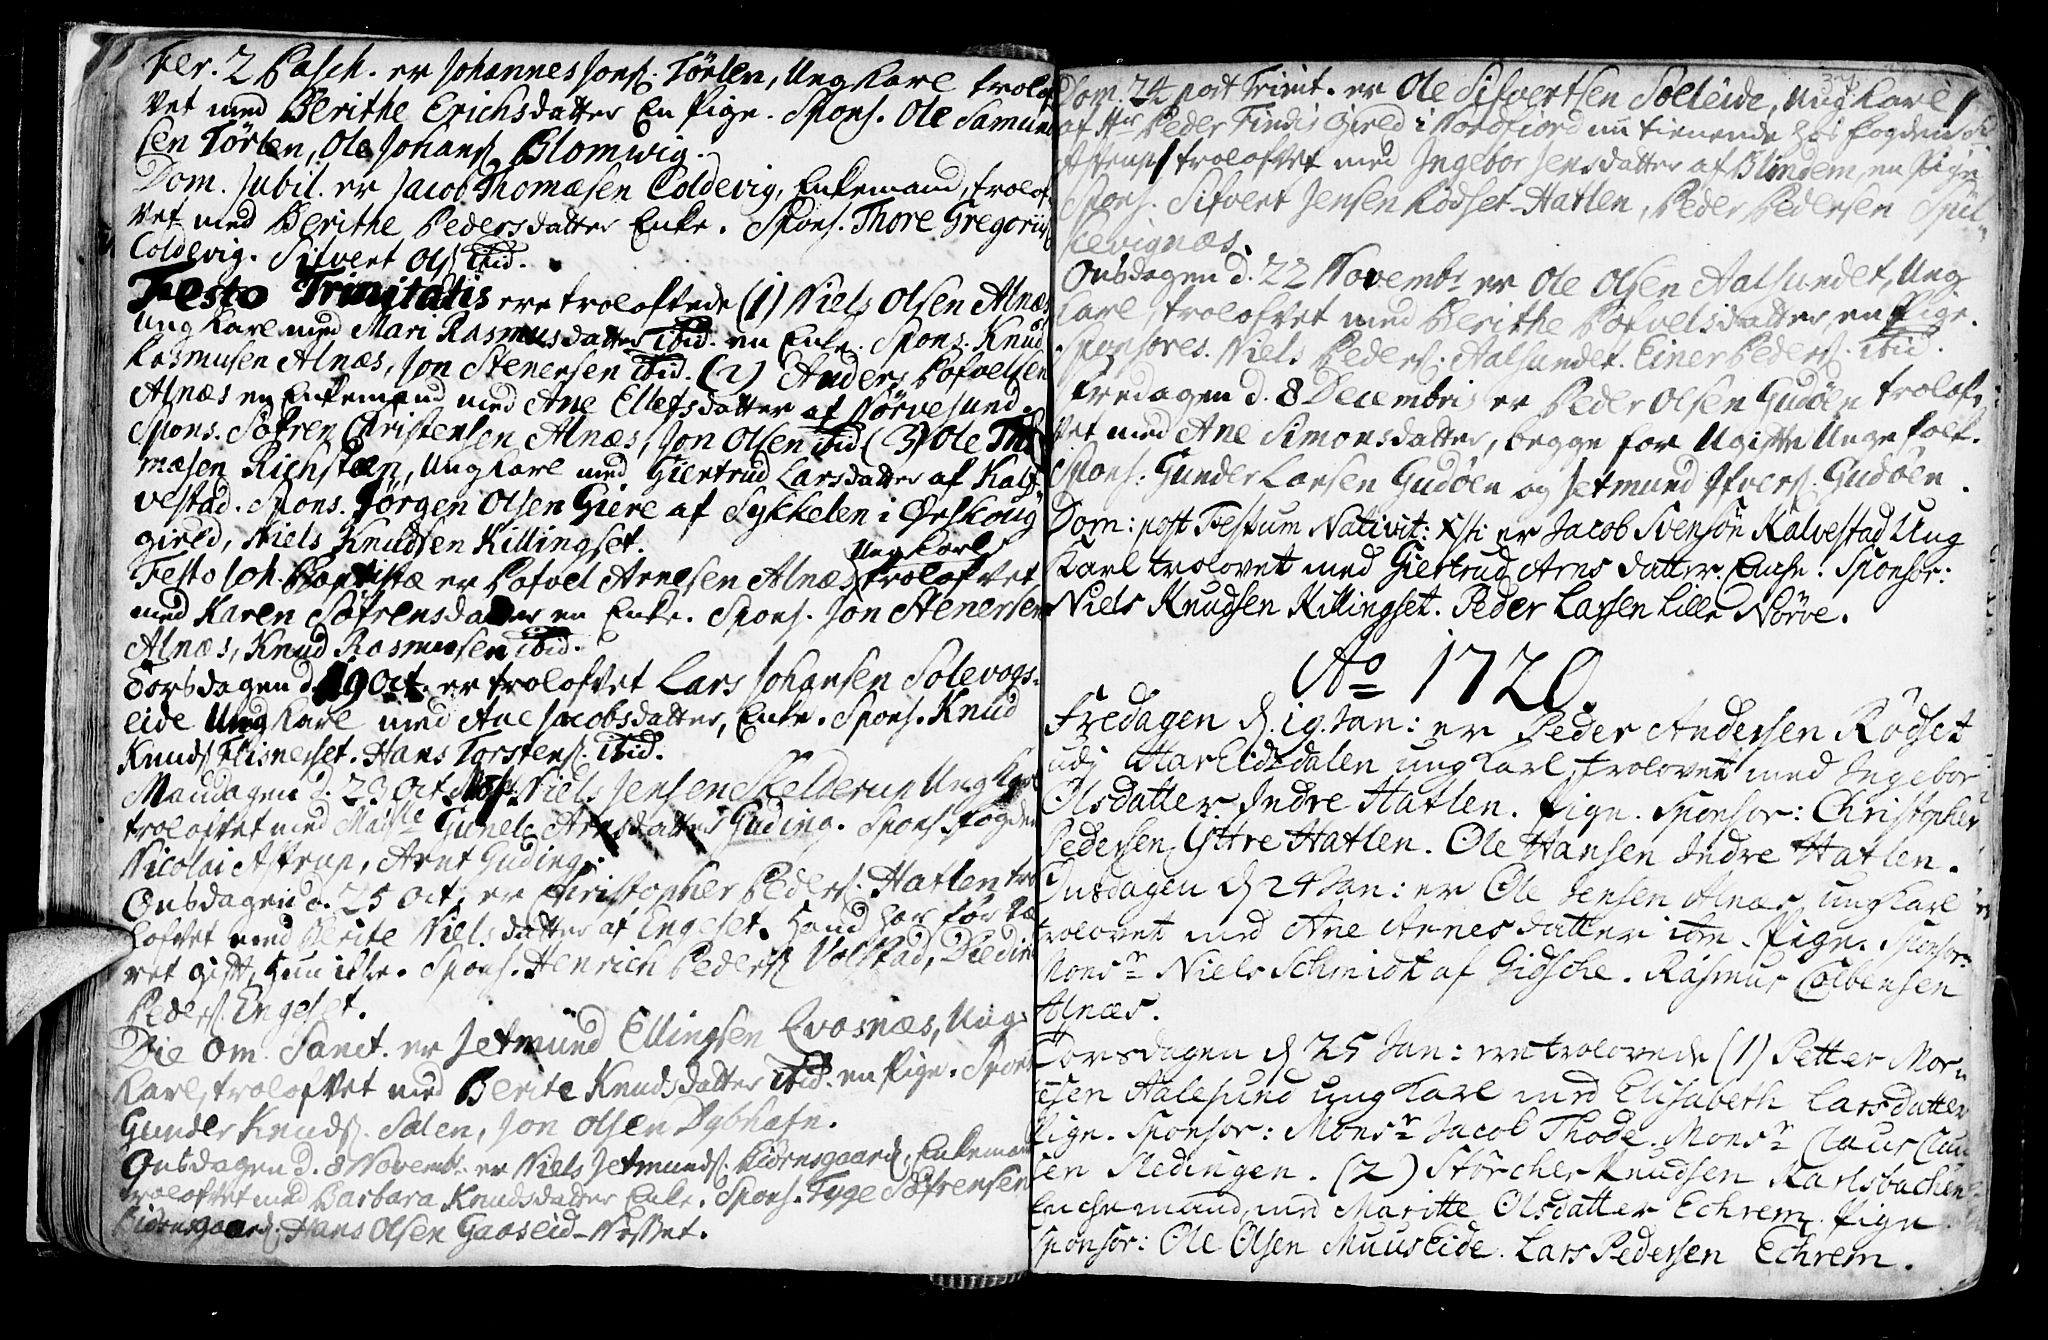 Fer. 2 Pasch. er Johannes Jons. Törlen, Ung Karl trolof
vet med Berithe Erichsdatter En Pige. Spons. Ole Samuel
sen Törlen, Ole Johans Blomvig.
Dom. Jubil. er Jacob Thomæsen Coldevig, Enkemand, trolof-
vet med Berithe Pedersdatter Enke. Spons. Thore Gregorii
Coldevig. Sifvert Ols ibid.
Festo Trinitatis ere trolofvede (1) Niels Olsen Alnæs
Ung Karl med Mari Rasmusdatter ibid. en Enke. Spons. Knud
Rasmusen Alnæs, Jon Stenersen ibid. (2) Anders Pofvelsen
Alnæs en Enkemand med Ane Ellefsdatter af Nörvesund.
Spons. Söfren Christensen Alnæs, Jon Olsen ibid (3) Ole Tho
mæsen Richsteen, Ung Karl med Giertrud Larsdatter af Kal
vestad. Spons. Jörgen Olsen Giere af Sykkelen i Ørskoug
gield, Niels Knudsen Killingset.
Festo Joh. Baptistæ er Pofvel Arnesen Alnæs Ung Karl trolofvet
med Karen Söfrensdatter en Enke. Spons. Jon Stenersen
Alnæs, Knud Rasmusen ibid.
Torsdagen d. 19 Oct. er trolofvet Lars Johansen Solevogs-
eide Ung Karl med Ane Jacobsdatter, Enke. Spons. Knud
Knuds Flisneset. Hans Torstens. ibid.
Mandagen d. 23 Oct. Niels Jensen Skelderun Ung Karl
trolofvet med Gunel Arnsdatter Guding. Spons. Fogden
Nicolai Astrup, Arnt Guding.
Onsdagen d. 25 Oct. er Christopher Peders. Hatlen tro
lofvet med Berite Nielsdatter af Engeset. Hand har før væ
ret gift, hun ikke. Spons. Henrich Peders Volstad,
Peders Engeset.
Die Om. Sanct. er Jetmund Ellingsen Qvasnæs, Ung
Karl, trolofvet med Berite Knudsdatter ibid. en Pige. Spons
Gunder Knuds. Salen, Jon Olsen Dybhafn.
Onsdagen d. 8 Novemb. er Niels Jetmunds. Biörnsgaard, Enkeman
trolofvet med Barbara Knudsdatter Enke. Spons. Tyge Söfrensen
Biörnsgaard. Hans Olsen Gaaseid-Nesset.
Dom. 24 post Trinit. er Ole Sifvertsen Solleide, Ung Karl
af Hr Peder Findis gield i Nordfiord nu tienende hos fogden
Astrup trolofvet med Ingebor Jensdatter af Blindem, en Pige
Spons. Sifvert Jensen Rödset-Hatlen, Peder Pedersen Spil-
kevignæs.
Onsdagen d. 22 Novembr er Ole Olsen Aalsundet, Ung
Karl, trolofvet med Berithe Pofvelsdatter, en Pige.
Sponsores. Niels Peders. Aalsundet. Einer Peders. ibid.
Fredagen d. 8 Decembris er Peder Olsen Gudöen trolof-
vet med Ane Simonsdatter, begge for Ugifte Unge folk.
Spons. Gunder Larsen Gudöen og Jetmund Ifvers. Gudöen.
Dom: post Festum Nativit: Xsti er Jacob Svensön Kalvestad Ung
Karl trolovet med Giertrud Arnsdatter. Enche. Sponsor:
Niels Knudsen Killingset. Peder Larsen Lille Nörve.
Ao 1720.
Fredagen d. 19. Jan: er Peder Andersen Rödset
udj Hareidsdalen ung Karl, trolovet med Ingebor
Olsdatter Indre Hatlen. Pige. Sponsor: Christopher
Pedersen Ystre Hatlen. Ole Hansen Indre Hatlen.
Onsdagen d 24 Jan: er Ole Jensen Alnæs ung Karl
trolovet med Ane Arnesdatter ibm. Pige. Sponsor:
Monsr Niels Schmidt af Gidsche. Rasmus Colbensen
Alnæs.
Torsdagen d 25 Jan: ere trolovede (1) Petter Mor-
tesen Aalesund ung Karl med Elisabeth Larsdatter
Pige. Sponsor: Monsr Jacob Thode. Monsr Claus Clau
sen Sledingen. (2) Störcher Knudsen Karlsbachen
Enchemand, med Maritte Olsdatter Echrem. Pige
Sponsor: Ole Olsen Muuseide. Lars Pedersen Echrem.